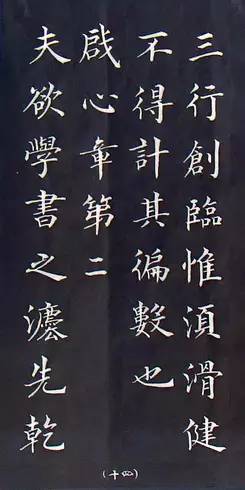 三行創臨惟湏滑健
不得計其徧數也
啟心章第二
夫欲學書之灋先乾
(十四)